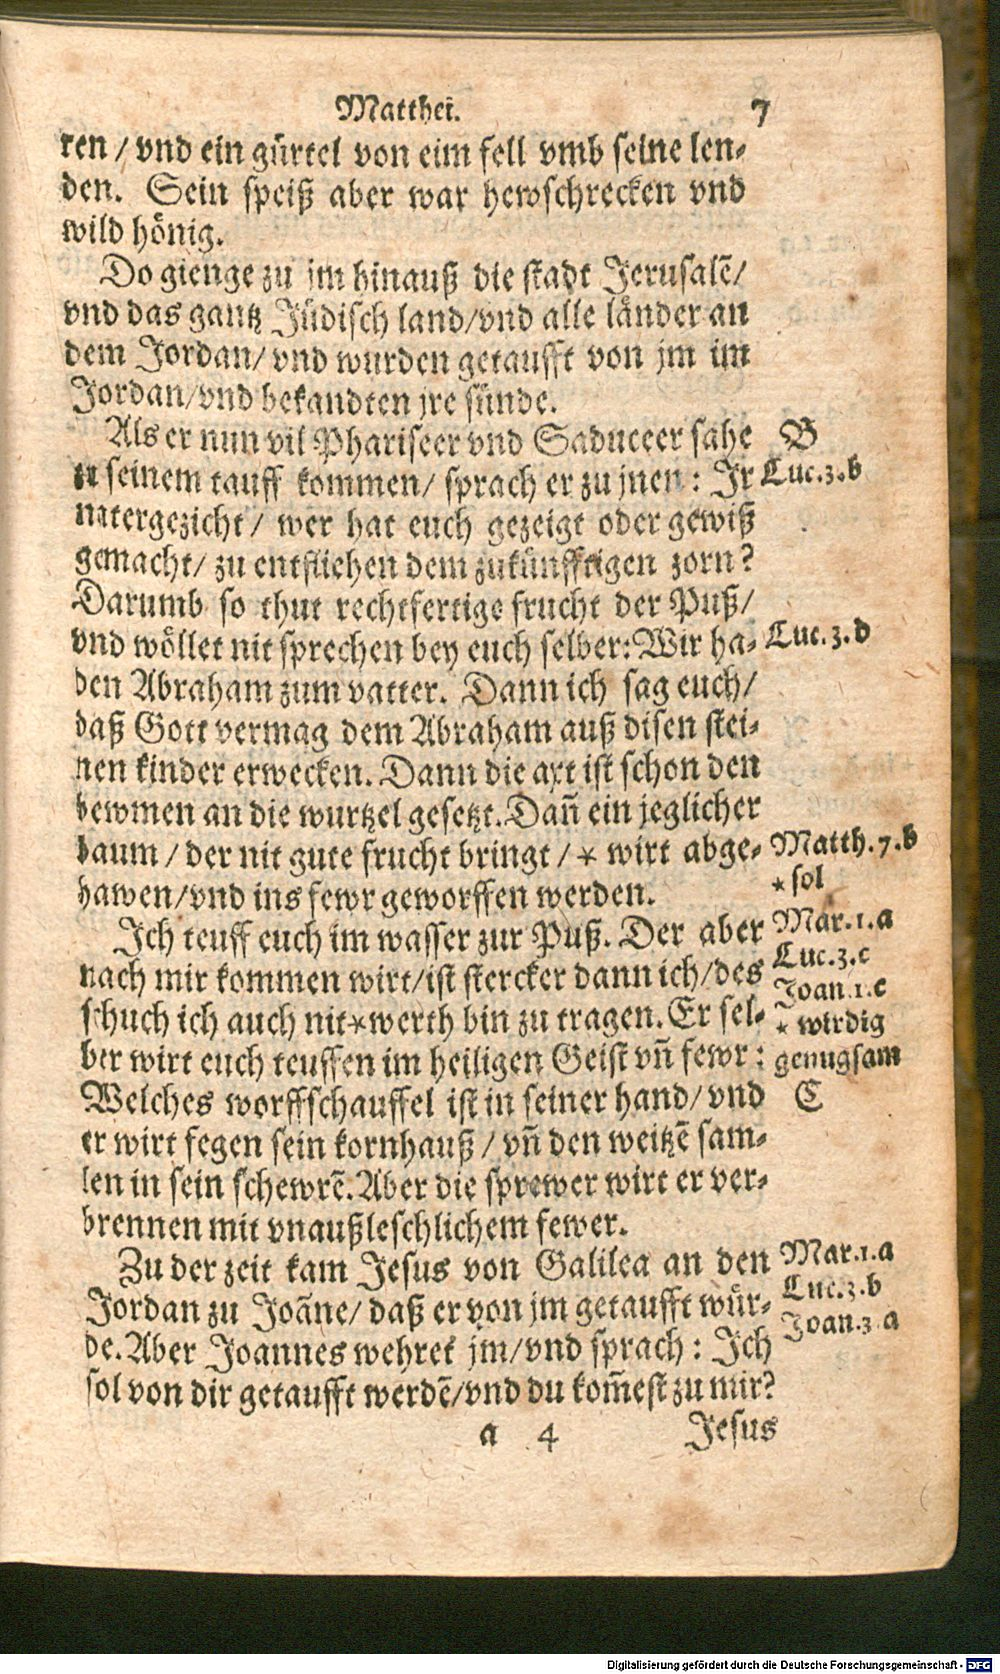 Matthei. 7
ren / vnd ein gürtel von eim fell vmb seine len-
den. Sein speiß aber war hewschrecken vnd
wild hönig.
Do gienge zu jm hinauß die stadt Jerusalē/
vnd das gantz Jüdisch land/vnd alle länder an
dem Jordan/ vnd wurden getaufft von jm im
Jordan/vnd bekandten jre sünde.
Als er nun vil Phariseer vnd Saduceer sahe B
zu seinem tauff kommen/ sprach er zu jnen: Ir Luc.3.b
natergezicht/ wer hat euch gezeigt oder gewiß
gemacht/ zu entfliehen dem zukünfftigen zorn?
Darumb so thut rechtfertige frucht der Puß/
vnd wöllet nit sprechen bey euch selber: Wir ha- Luc.3.d
den Abraham zum vatter. Dann ich sag euch/
daß Gott vermag dem Abraham auß disen stei-
nen kinder erwecken. Dann die axt ist schon den
bewmen an die wurtzel gesetzt. Dañ ein jeglicher
baum / der nit gute frucht bringt / * wirt abge- Matth.7.b
hawen/vnd ins fewr geworffen werden. * sol
Ich teuff euch im wasser zur Puß. Der aber Mar.1.a
nach mir kommen wirt/ist stercker dann ich/des Luc.3.c
schuch ich auch nit*werth bin zu tragen. Er sel- Joan.1.c
ber wirt euch teuffen im heiligen Geist vñ fewr: * wirdig
genugsam
Welches worffschauffel ist in seiner hand/ vnd C
er wirt fegen sein kornhauß / vñ den weitzē sam-
len in sein schewrē. Aber die sprewer wirt er ver-
brennen mit vnaußleschlichem fewer.
Zu der zeit kam Jesus von Galilea an den Mar.1.a
Jordan zu Joāne/ daß er von jm getaufft wür- Luc.3.b
de. Aber Joannes wehret jm/vnd sprach: Ich Joan.3 a
sol von dir getaufft werdē/vnd du kom̄est zu mir?
a 4 Jesus
Digitalisierung gefördert durch die Deutsche Forschungsgemeinschaft - DFG